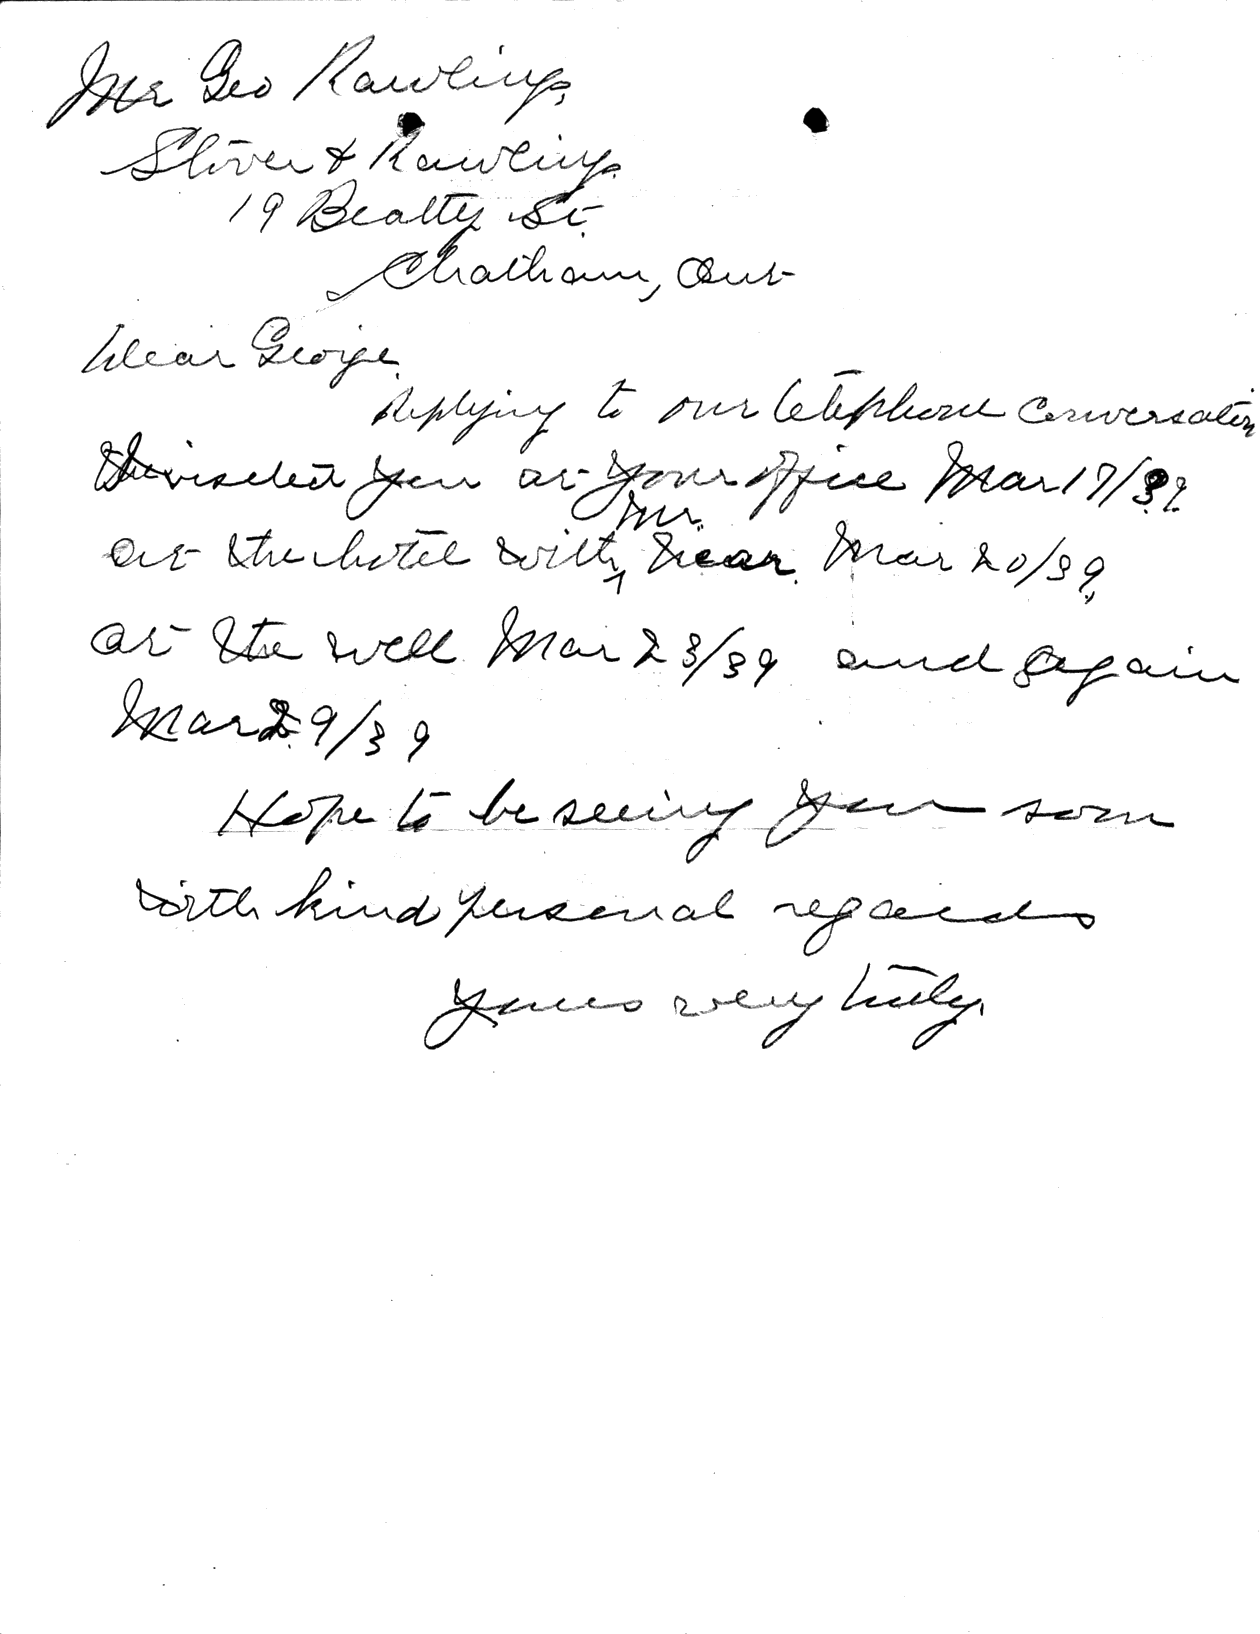 Mr Geo Rawlings,
Stover & Rawlings.
19 Beatty St.
Chatham, Ont
Dear George.
Replying to our telephone conversation
visited you at your office Mar 17/39.
at the hotel with Mr. Near. Mar 20/39,
at the well Mar 23/39 and again
Mar 29/39
Hope to be seeing you soon
with kind personal regards
Yours very truly,